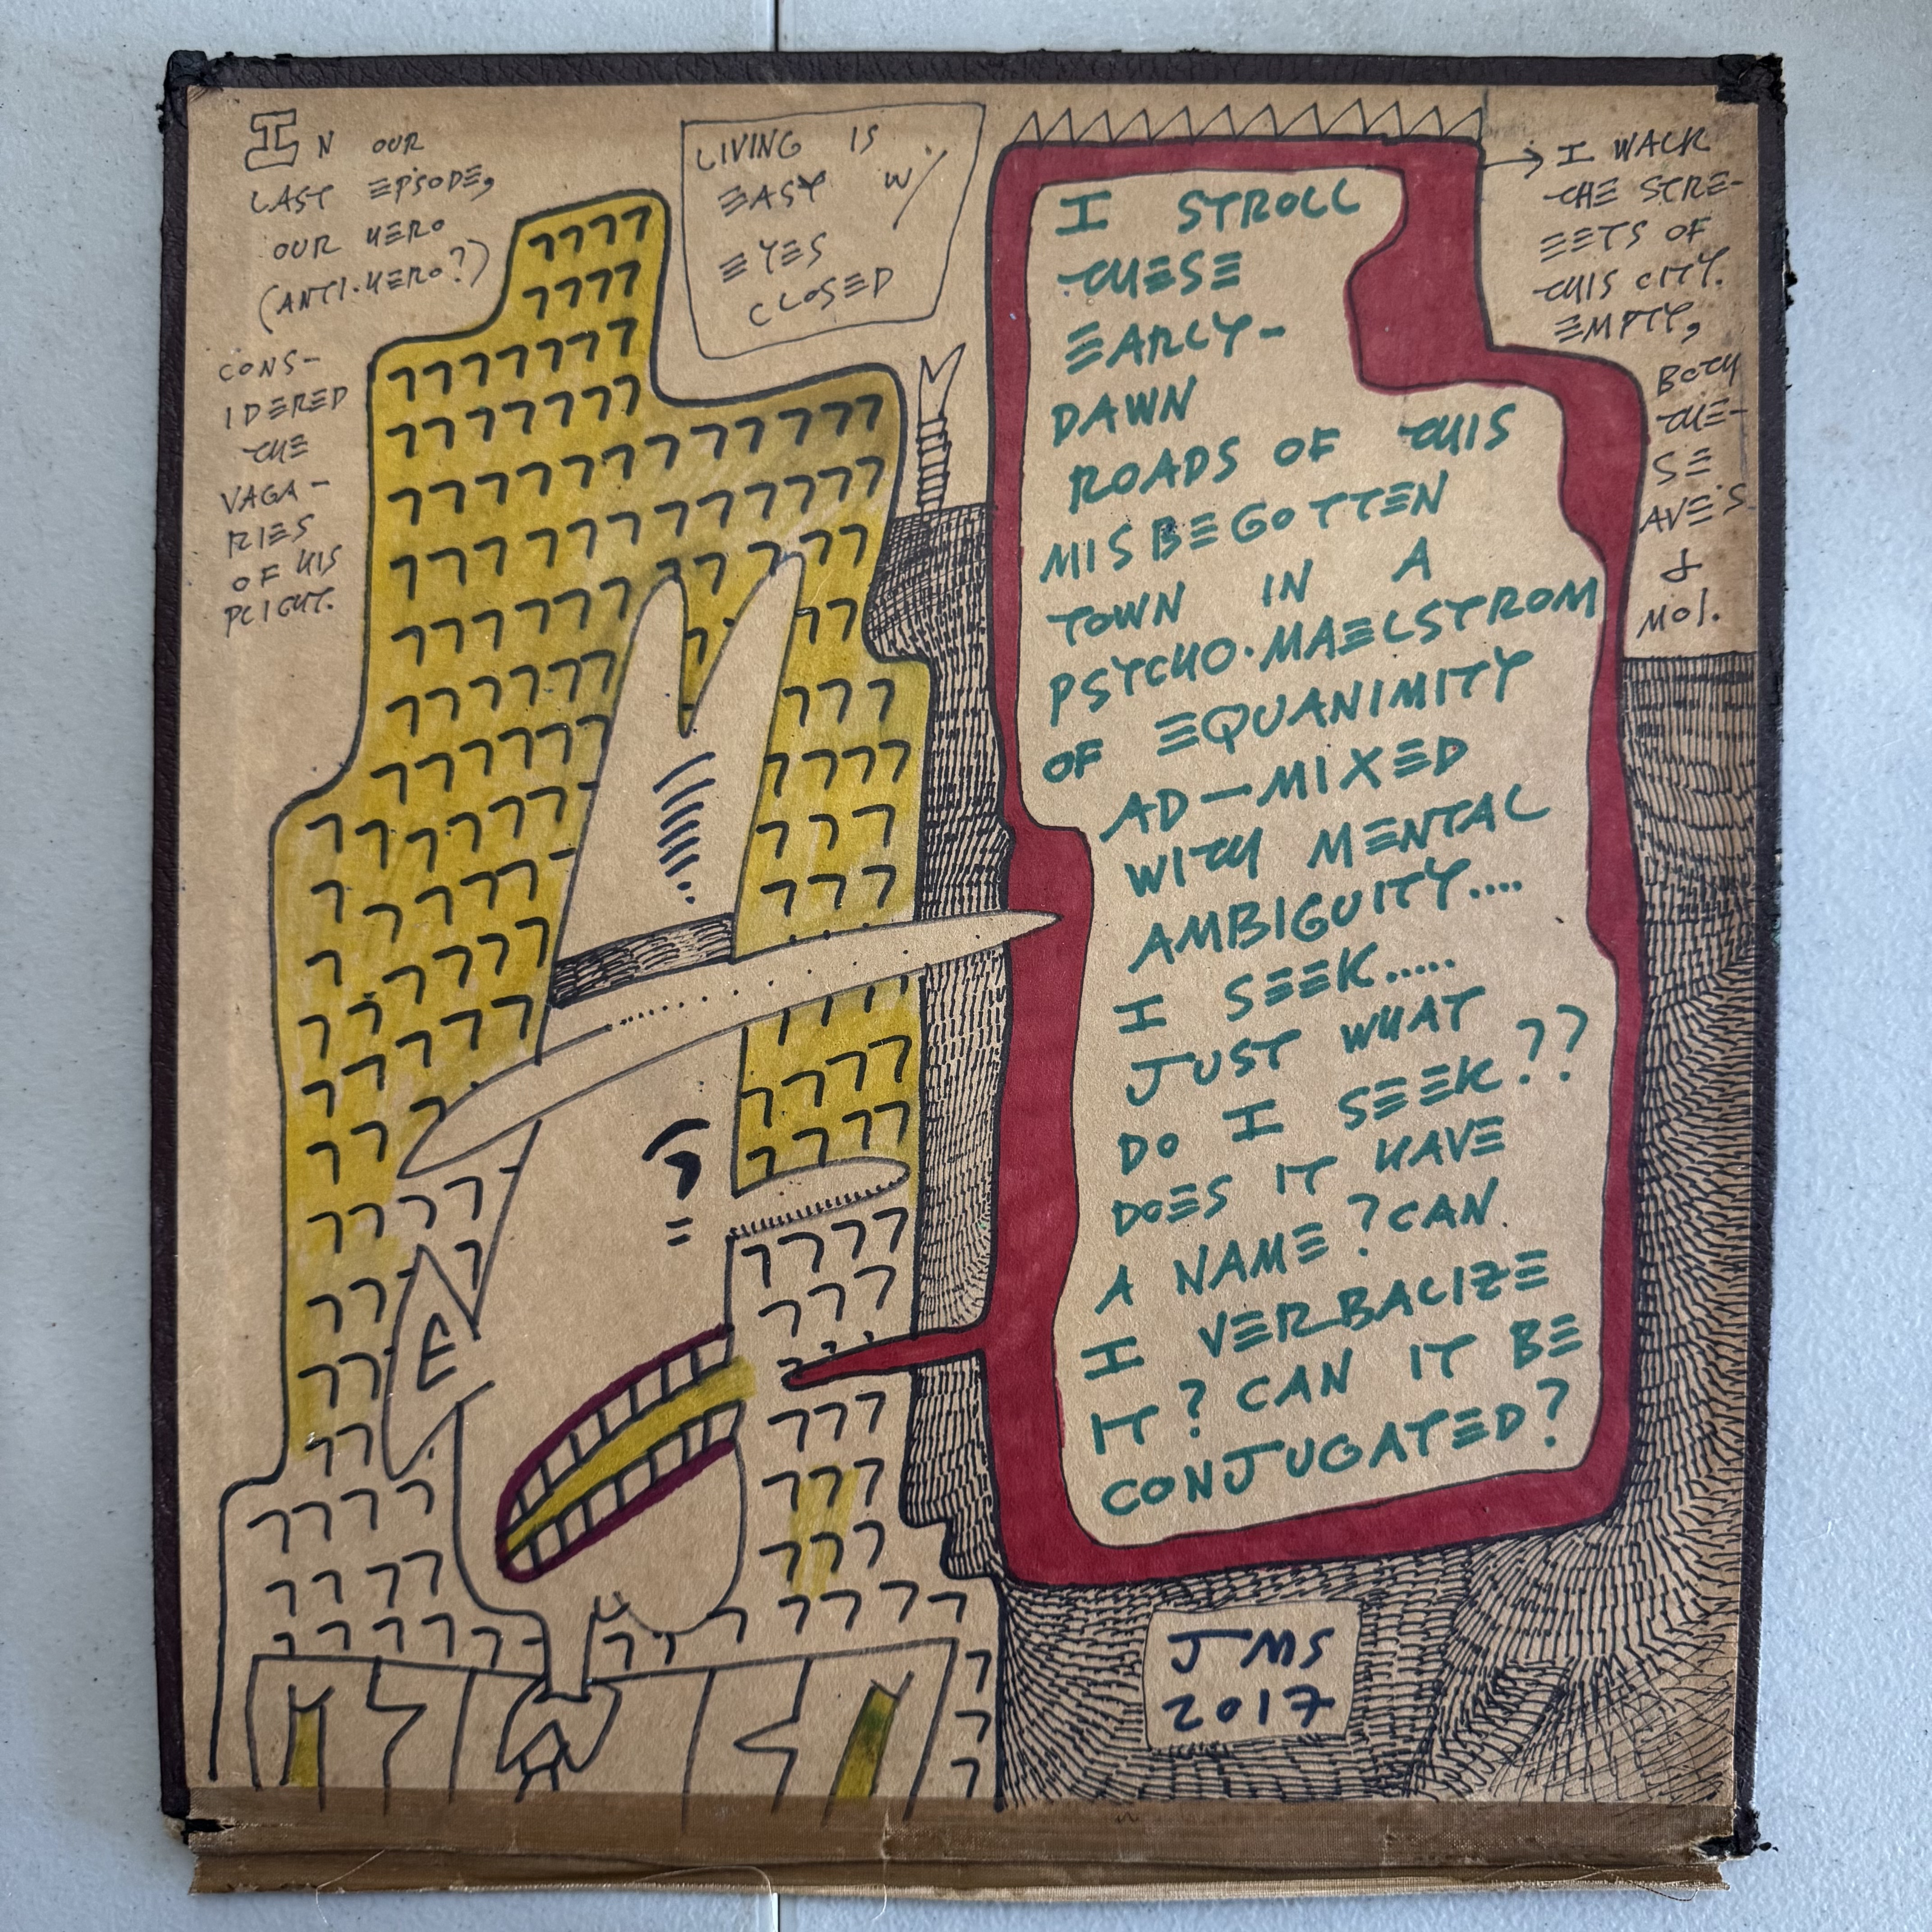 IN OUR
LAST EPSODE,
OUR HERO
(ANTI·HERO?)
CONS-
IDERED
THE
VAGA-
RIES
OF HIS
PLIGHT.
LIVING IS
EASY W/
EYES
CLOSED
I STROLL
THESE
EARLY-
DAWN
ROADS OF THIS
MISBEGOTTEN
TOWN IN A
PSYCHO·MAELSTROM
OF EQUANIMITY
AD-MIXED
WITH MENTAL
AMBIGUITY....
I SEEK.....
JUST WHAT
DO I SEEK??
DOES IT HAVE
A NAME? CAN
I VERBALIZE
IT? CAN IT BE
CONJUGATED?
→ I WALK
THE STRE-
EETS OF
THIS CITY.
EMPTY,
BOTH
THE-
SE
AVE'S
&
MOI.
JMS
2017